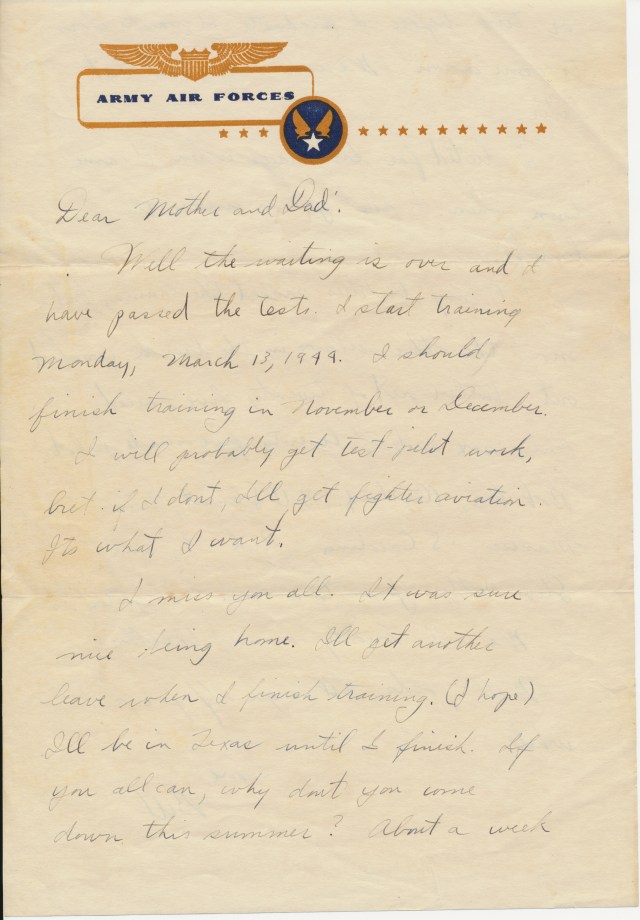 ARMY AIR FORCES
Dear Mother and Dad:
Well the waiting is over and I
have passed the tests. I start training
Monday, March 13, 1944. I should
finish training in November or December.
I will probably get test-pilot work,
but if I dont, Ill get fighter aviation.
Its what I want.
I miss you all. It was sure
nice being home. Ill get another
leave when I finish training. (I hope)
Ill be in Texas until I finish. If
you all can, why dont you come
down this summer? About a week